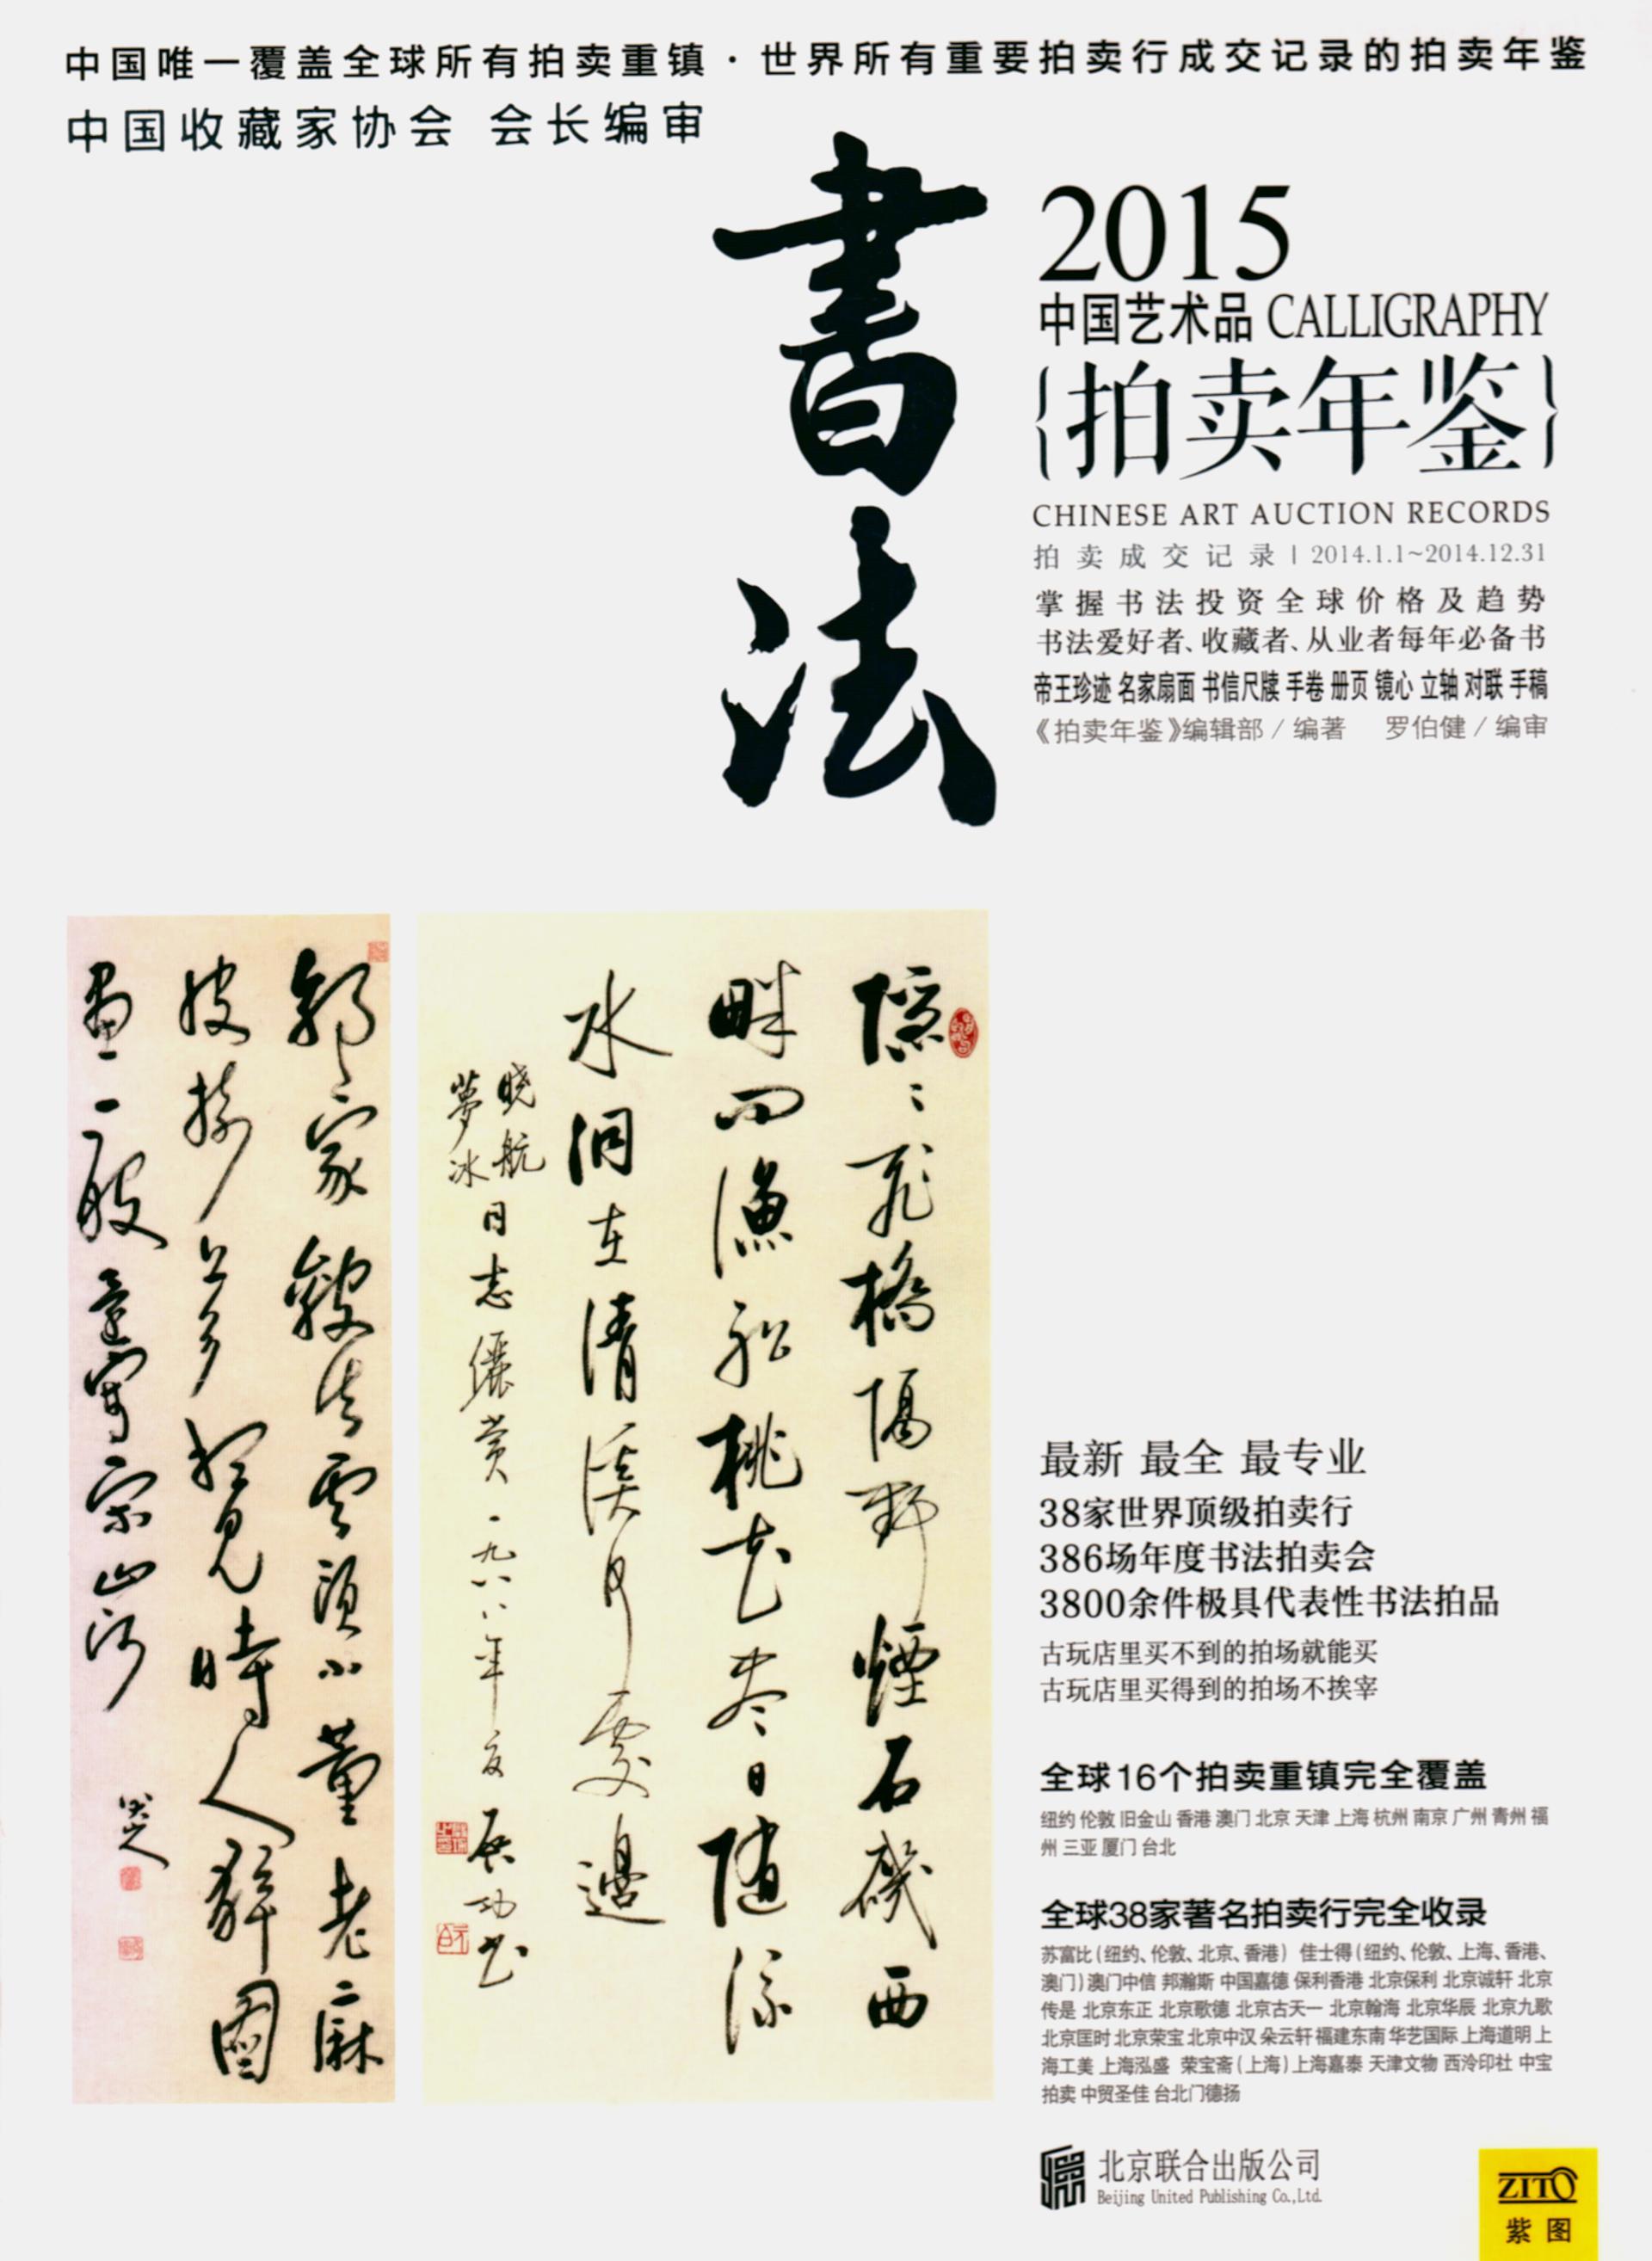 中国唯一覆盖全球所有拍卖重镇·世界所有重要拍卖行成交记录的拍卖年鉴
中国收藏家协会 会长编审
書法
2015
中国艺术品 CALLIGRAPHY
{拍卖年鉴}
CHINESE ART AUCTION RECORDS
拍卖成交记录 | 2014.1.1~2014.12.31
掌握书法投资全球价格及趋势
书法爱好者、收藏者、从业者每年必备书
帝王珍迹 名家扇面 书信尺牍 手卷 册页 镜心 立轴 对联 手稿
《拍卖年鉴》编辑部/编著 罗伯健/编审
隱〻飛橋隔野煙石磯西
畔问漁船桃花盡日随流
水洞在清溪何處邊
晓航
夢冰
日志儷赏 一九八八年夏 启功书
郭家皴法雲頭小董老麻
皮樹上多想見時人解圖
畫一峰還寫宋山河
八大
最新 最全 最专业
38家世界顶级拍卖行
386场年度书法拍卖会
3800余件极具代表性书法拍品
古玩店里买不到的拍场就能买
古玩店里买得到的拍场不挨宰
全球16个拍卖重镇完全覆盖
纽约 伦敦 旧金山 香港 澳门 北京 天津 上海 杭州 南京 广州 青州 福
州 三亚 厦门 台北
全球38家著名拍卖行完全收录
苏富比(纽约、伦敦、北京、香港) 佳士得(纽约、伦敦、上海、香港、
澳门)澳门中信 邦瀚斯 中国嘉德 保利香港 北京保利 北京诚轩 北京
传是 北京东正 北京歌德 北京古天一 北京翰海 北京华辰 北京九歌
北京匡时 北京荣宝 北京中汉 朵云轩 福建东南 华艺国际 上海道明 上
海工美 上海泓盛 荣宝斋(上海)上海嘉泰 天津文物 西泠印社 中宝
拍卖 中贸圣佳 台北门德扬
北京联合出版公司
Beijing United Publishing Co.,Ltd.
ZITO
紫图